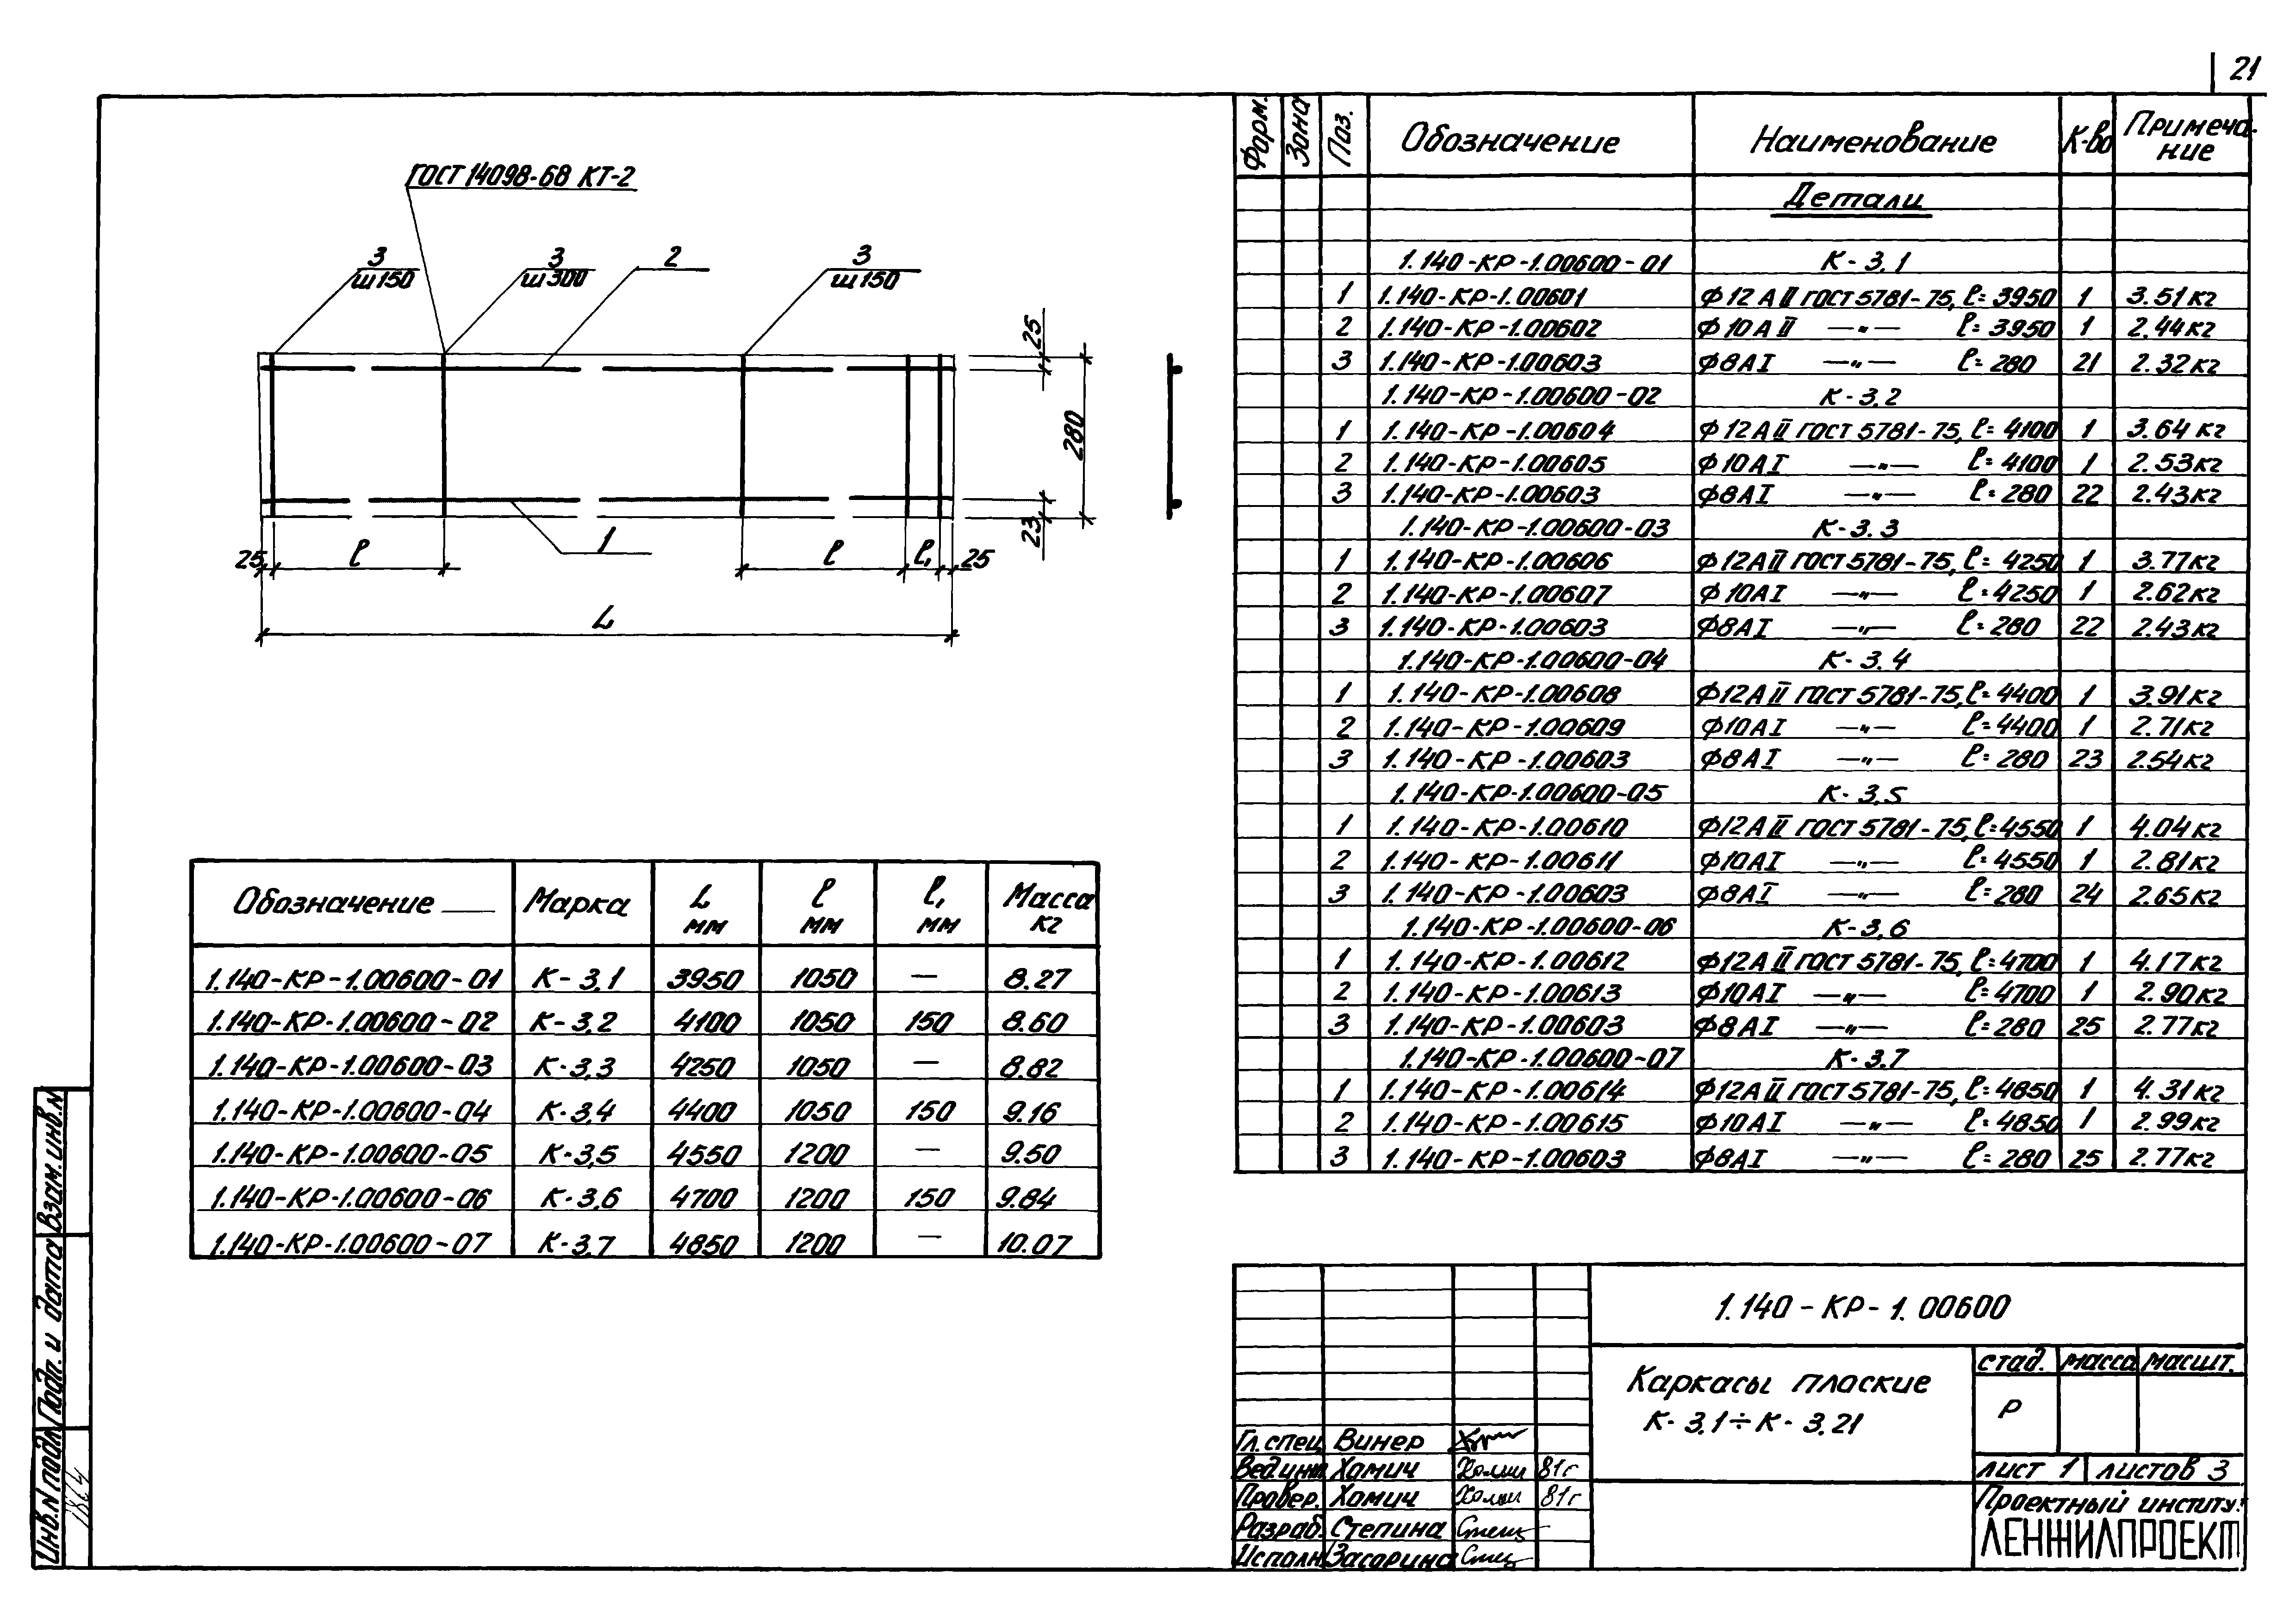 21
ГОСТ 14098-68 КТ-2
3 3 2 3
ш150 ш300 ш150
25
280
23
1
25 ℓ ℓ ℓ₁ 25
L
Обозначение Марка L мм ℓ мм ℓ₁ мм Масса кг
1.140-КР-1.00600-01 К-3.1 3950 1050 — 8.27
1.140-КР-1.00600-02 К-3.2 4100 1050 150 8.60
1.140-КР-1.00600-03 К-3.3 4250 1050 — 8.82
1.140-КР-1.00600-04 К-3.4 4400 1050 150 9.16
1.140-КР-1.00600-05 К-3.5 4550 1200 — 9.50
1.140-КР-1.00600-06 К-3.6 4700 1200 150 9.84
1.140-КР-1.00600-07 К-3.7 4850 1200 — 10.07
Форм. Зона Поз. Обозначение Наименование К-во Примеча-ние
Детали
1.140-КР-1.00600-01 К-3.1
1 1.140-КР-1.00601 Ф12АII ГОСТ 5781-75, ℓ=3950 1 3.51кг
2 1.140-КР-1.00602 Ф10АII —"— ℓ=3950 1 2.44кг
3 1.140-КР-1.00603 Ф8АI —"— ℓ=280 21 2.32кг
1.140-КР-1.00600-02 К-3.2
1 1.140-КР-1.00604 Ф12АII ГОСТ 5781-75, ℓ=4100 1 3.64кг
2 1.140-КР-1.00605 Ф10АI —"— ℓ=4100 1 2.53кг
3 1.140-КР-1.00603 Ф8АI —"— ℓ=280 22 2.43кг
1.140-КР-1.00600-03 К-3.3
1 1.140-КР-1.00606 Ф12АII ГОСТ 5781-75, ℓ=4250 1 3.77кг
2 1.140-КР-1.00607 Ф10АI —"— ℓ=4250 1 2.62кг
3 1.140-КР-1.00603 Ф8АI —"— ℓ=280 22 2.43кг
1.140-КР-1.00600-04 К-3.4
1 1.140-КР-1.00608 Ф12АII ГОСТ 5781-75, ℓ=4400 1 3.91кг
2 1.140-КР-1.00609 Ф10АI —"— ℓ=4400 1 2.71кг
3 1.140-КР-1.00603 Ф8АI —"— ℓ=280 23 2.54кг
1.140-КР-1.00600-05 К-3.5
1 1.140-КР-1.00610 Ф12АII ГОСТ 5781-75, ℓ=4550 1 4.04кг
2 1.140-КР-1.00611 Ф10АI —"— ℓ=4550 1 2.81кг
3 1.140-КР-1.00603 Ф8АI —"— ℓ=280 24 2.65кг
1.140-КР-1.00600-06 К-3.6
1 1.140-КР-1.00612 Ф12АII ГОСТ 5781-75, ℓ=4700 1 4.17кг
2 1.140-КР-1.00613 Ф10АI —"— ℓ=4700 1 2.90кг
3 1.140-КР-1.00603 Ф8АI —"— ℓ=280 25 2.77кг
1.140-КР-1.00600-07 К-3.7
1 1.140-КР-1.00614 Ф12АII ГОСТ 5781-75, ℓ=4850 1 4.31кг
2 1.140-КР-1.00615 Ф10АI —"— ℓ=4850 1 2.99кг
3 1.140-КР-1.00603 Ф8АI —"— ℓ=280 25 2.77кг
1.140-КР-1.00600
Каркасы плоские
К-3.1÷К-3.21
стад. масса масшт.
Р
лист 1 листов 3
Проектный институт
ЛЕНЖИЛПРОЕКТ
Гл.спец. Винер
Вед.инж. Хомич 81г
Провер. Хомич 81г
Разраб. Степина
Исполн. Засорина
Инв.N подл. Подп. и дата Взам.инв.N